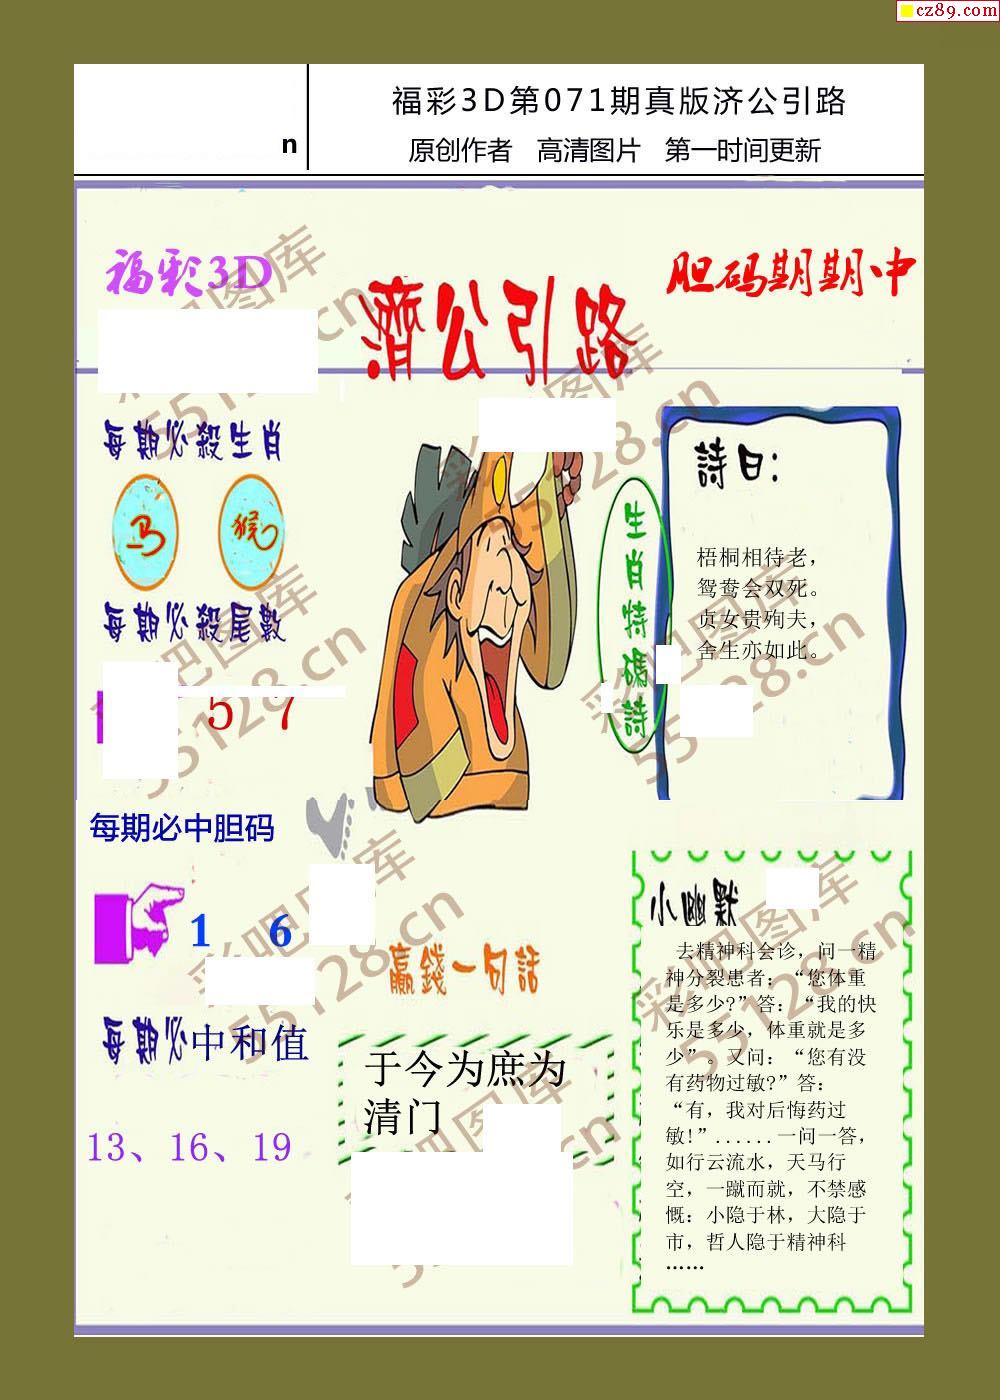 cz89.com
n
福彩3D第071期真版济公引路
原创作者 高清图片 第一时间更新
福彩3D
濟公引路
胆码期期中
每期必殺生肖
马 猴
每期必殺尾數
5 7
每期必中胆码
1 6
每期必中和值
13、16、19
生肖特碼詩
詩曰：
梧桐相待老，
鸳鸯会双死。
贞女贵殉夫，
舍生亦如此。
贏錢一句話
于今为庶为
清门
小幽默
去精神科会诊，问一精
神分裂患者；“您体重
是多少?”答：“我的快
乐是多少，体重就是多
少”。又问：“您有没
有药物过敏?”答：
“有，我对后悔药过
敏!”......一问一答，
如行云流水，天马行
空，一蹴而就，不禁感
慨：小隐于林，大隐于
市，哲人隐于精神科
……
彩吧图库
55128.cn
彩吧图库
55128.cn
彩吧图库
55128.cn
彩吧图库
55128.cn
彩吧图库
55128.cn
彩吧图库
55128.cn